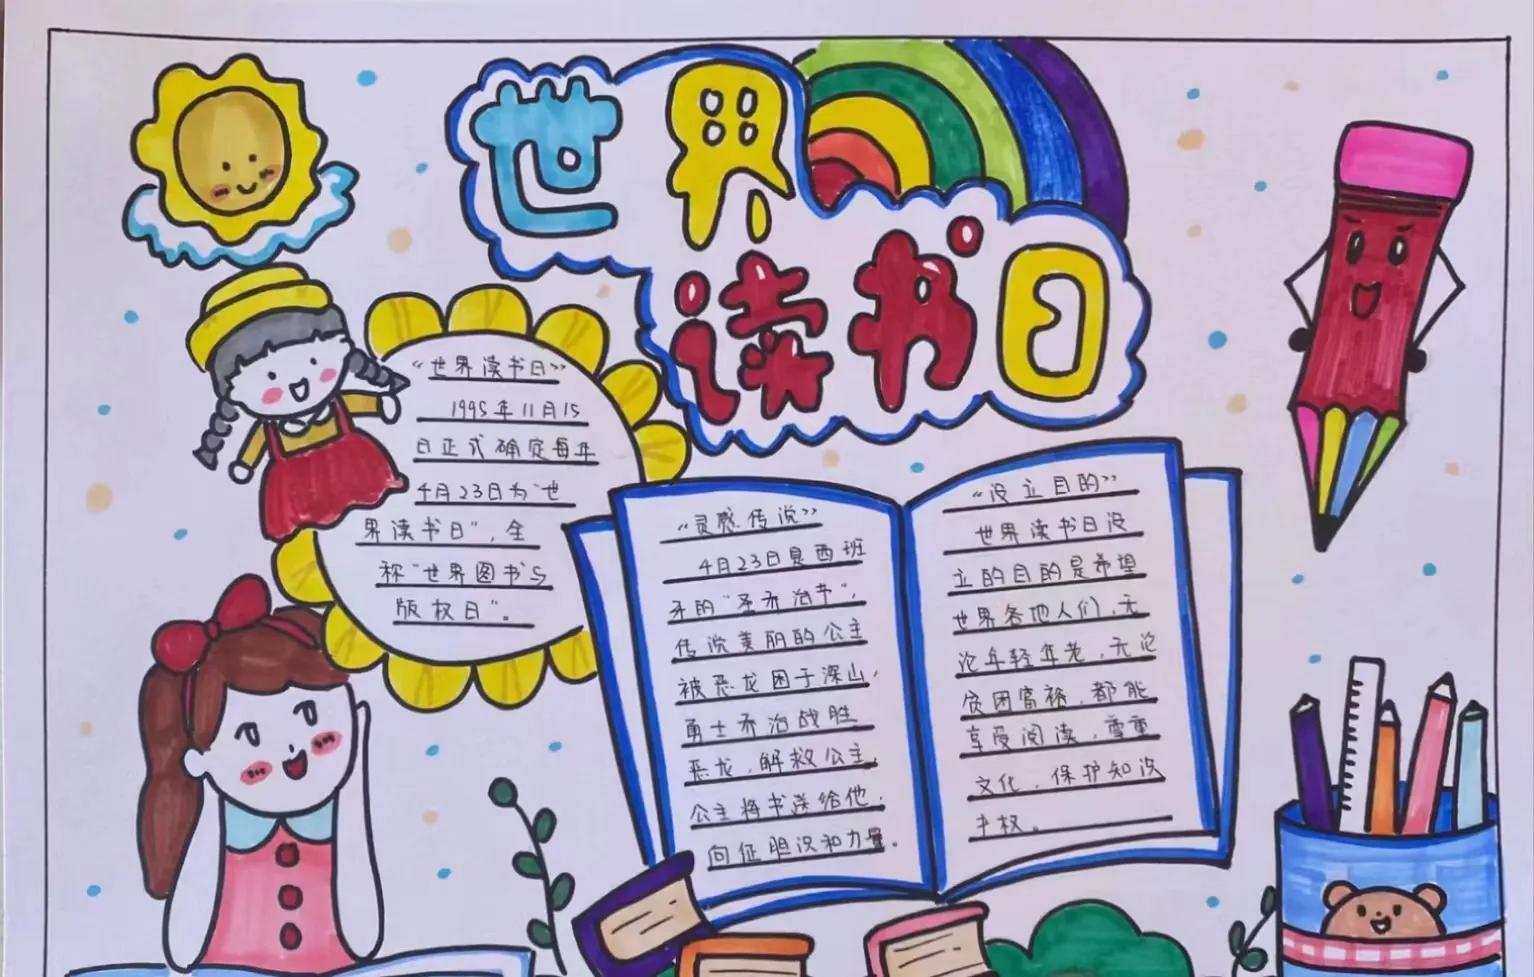 世界
读书日
“世界读书日”
1995年11月15
日正式确定每年
4月23日为“世
界读书日”，全
称“世界图书与
版权日”。
“灵感传说”
4月23日是西班
牙的“圣乔治节”，
传说美丽的公主
被恶龙困于深山，
勇士乔治战胜
恶龙，解救公主，
公主将书送给他，
向征胆识和力量。
“设立目的”
世界读书日设
立的目的是希望
世界各地人们，无
论年轻年老，无论
贫困富裕，都能
享受阅读，尊重
文化，保护知识
产权。